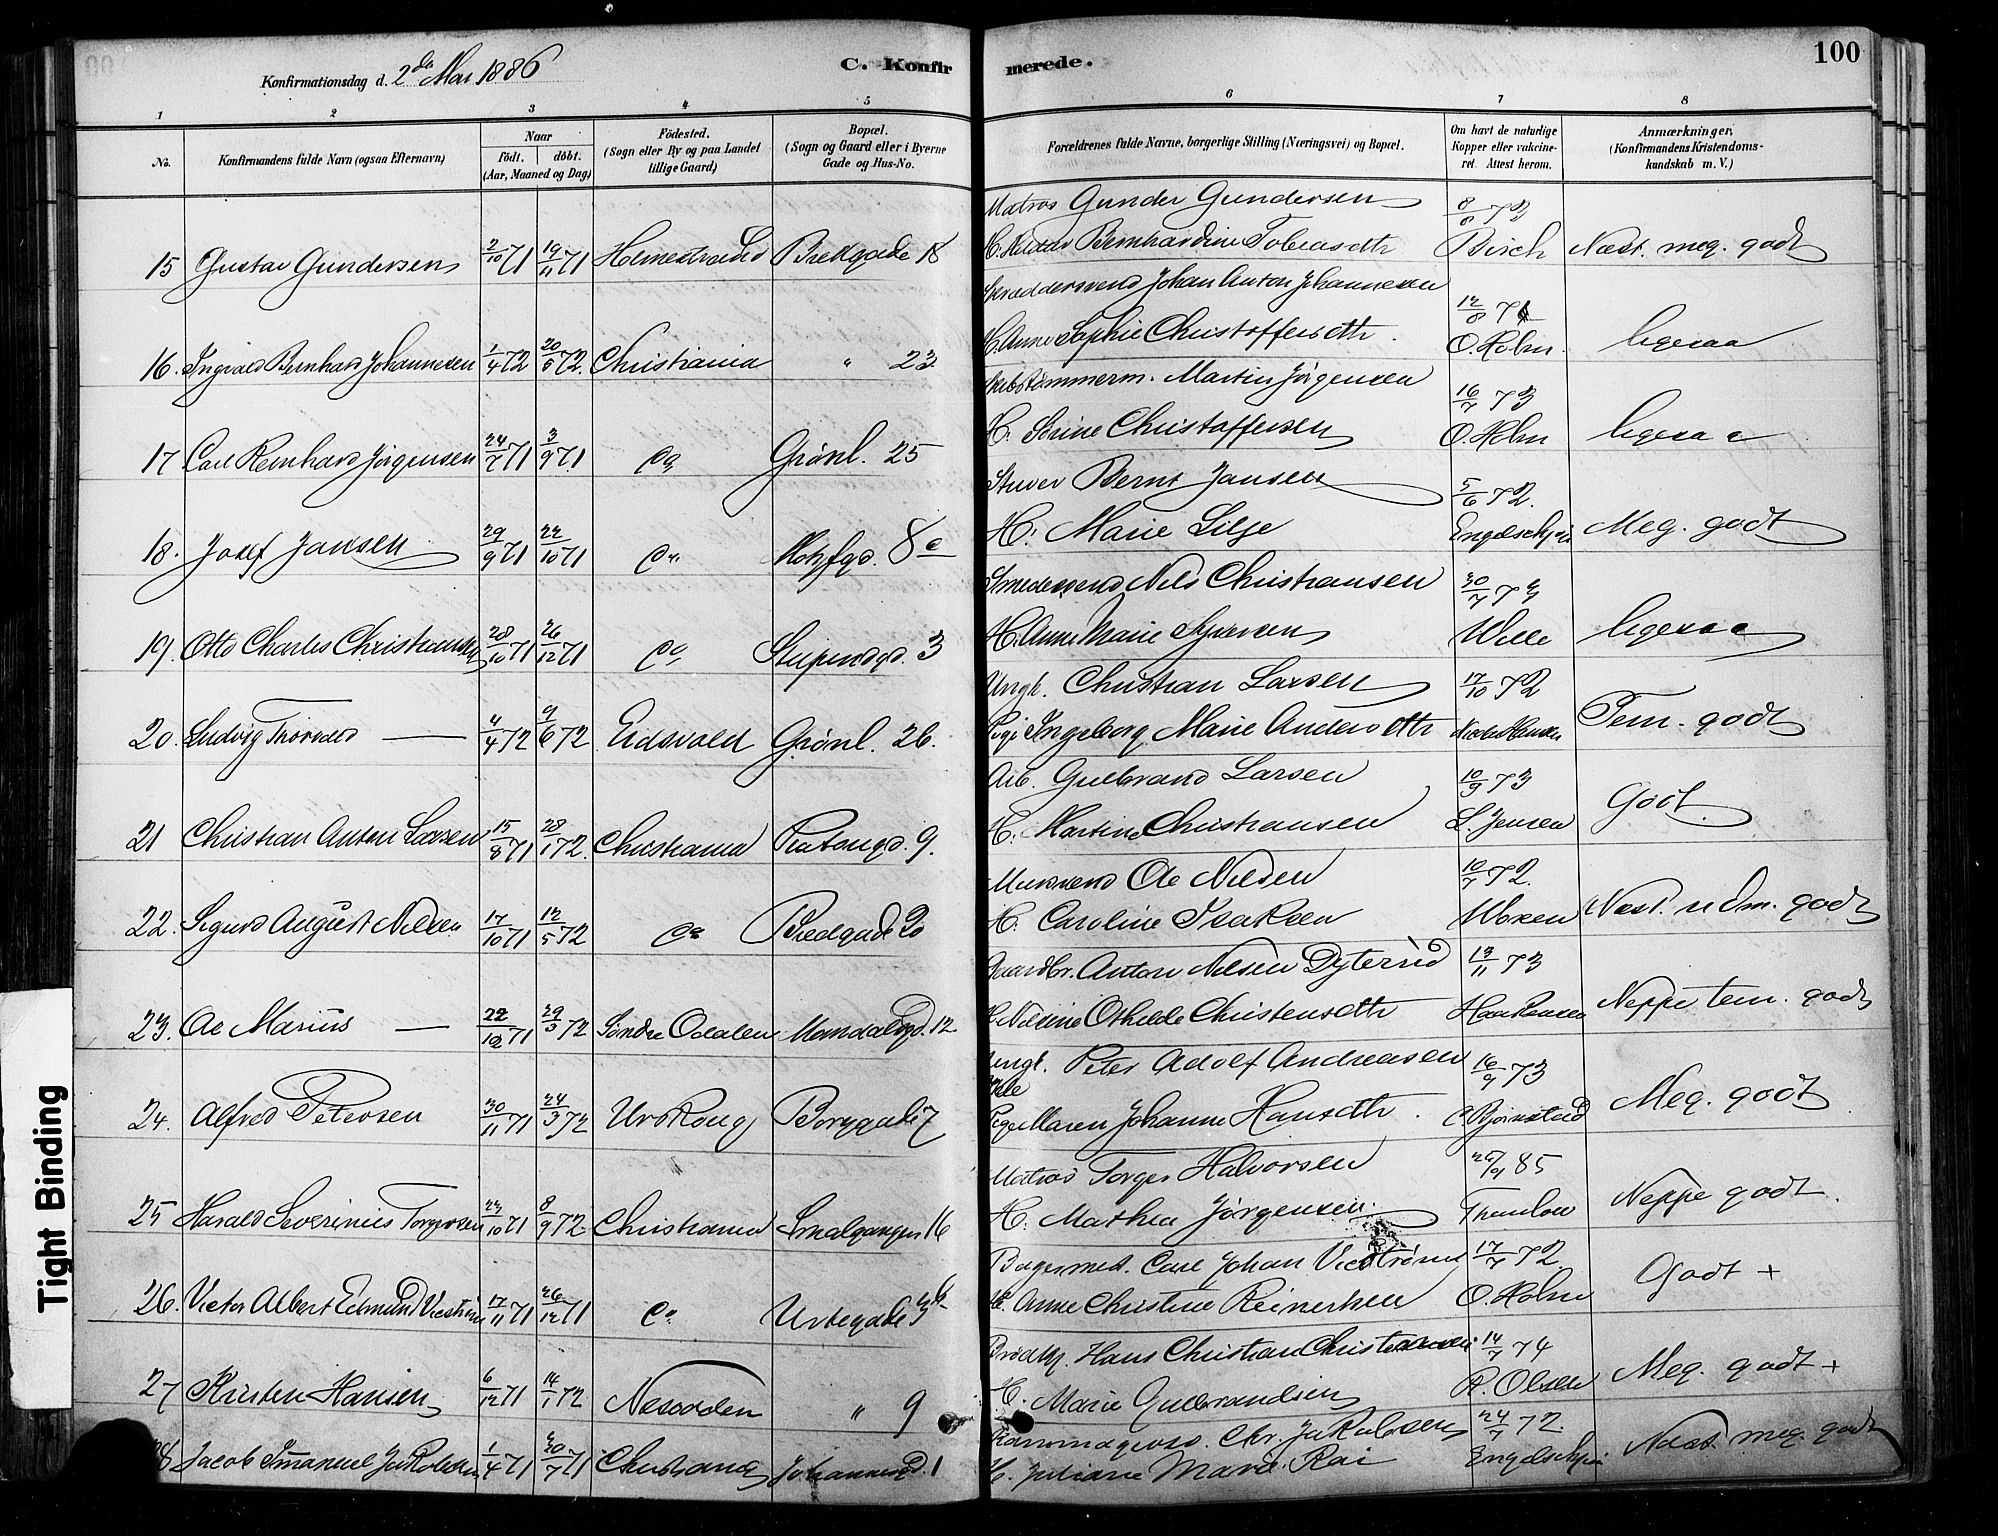 100
Konfirmationsdag d. 2den Mai 1886 C. Konfirmerede.
1 2 3 4 5 6 7 8
No. Konfirmandens fulde Navn (ogsaa Efternavn) Naar födt. döbt. (Aar, Maaned og Dag) Födested. (Sogn eller By og paa Landet tillige Gaard) Bopæl. (Sogn og Gaard eller i Byerne Gade og Hus-No. Forældrenes fulde Navne, borgerlige Stilling (Næringsvei) og Bopæl. Om havt de naturlige Kopper eller vakcineret. Attest herom. Anmærkninger. (Konfirmandens Kristendomskundskab m. V.)
Matros Gunder Gundersen 8/8 72
15 Gustav Gundersen 2/10 71 19/11 71 Holmestrand Bredgade 18 Bernhardine Tobiasdtr Birch Næst. meg. godt
Skræddersvend Johan Anton Johannesen 12/8
16. Ingvald Bernhard Johannesen 1/4 72 20/5 72. Christiania " 23. H. Anne Sophie Christoffersdtr. O. Holm. ligesaa
Skibstømmerm. Martin Jörgensen 16/7 73
17 Carl Reinhard Jörgensen 24/7 71 3/9 71 Co Grönl. 25 H. Sörine Christoffersen O. Holm ligesaa
Stuver Bernt Jansen 5/6 72.
18. Josef Jansen 29/9 71 22/10 71 Co 8 c H. Marie Lilje Engelschjøn Meg. godt
Smedesvend Nils Christiansen 30/7
19. Otto Charles Christiansen 28/10 71 26/12 71 Co Stupensgd. 3 H. Anne Marie Syversen Wille ligesaa
Ungk. Christian Larsen 17/10 72
20. Ludvig Thorvald — 4/4 72 9/6 72 Eidsvold Grönl. 26. Pige Ingeborg Marie Andersdtr Hansen Tem. godt
Arb. Gulbrand Larsen 10/9 73
21 Christian Anton Larsen 15/8 71 28/1 72. Christiania 9. H. Martine Christiansen L. Jensen Godt.
Ole Nilsen 10/7 72.
22. Sigurd August Nilsen 17/10 71 12/5 72 Co Bredgade 20 H. Caroline Isaksen Woxen Næst. udm. godt
Gaardbr. Anton Nilsen Dyterud 13/11 73
23. Ole Marius — 22/12 71 29/3 72 Söndre Odalen Mandalsgd. 12 Othilde Christensdtr Haakensen Neppe tem. godt
Ungk. Peter Adolf Andreasen 16/9 73
24. Alfred Petersen 30/11 71 24/3 72 Urskoug Borggade 7 Pige Maren Johanne Hansdtr. C Bjørnstad Meg. godt
Matros Torger Halvorsen 25/9 85
25 Harald Severinius Torgersen 23/10 71 8/9 72 Christiania Smalgangen 16 H. Mathea Jørgensen. Thaulow Neppe godt.
Bagermest. Carl Johan Vickström 17/7 72.
26. Victor Albert Edmund Vickström 17/11 71 26/12 71 Co Urtegade H. Anne Christine Reinertsen O. Holm Godt +
Brødkj. Hans Christian Christiansen 14/7 74
27 Kristen Hansen 6/12 71 14/1 72 Nesodden " 9 H. Marie Gulbrandsen R. Olsen Meg. godt +
Chr. Jakobsen 24/7 72.
28 Jacob Imanuel Jakobsen 1/4 71 30/7 71 Christiania Johannesgd. 1 H. Juliane Marie Rai Engelschjøn Næst. meg. godt
Tight Binding